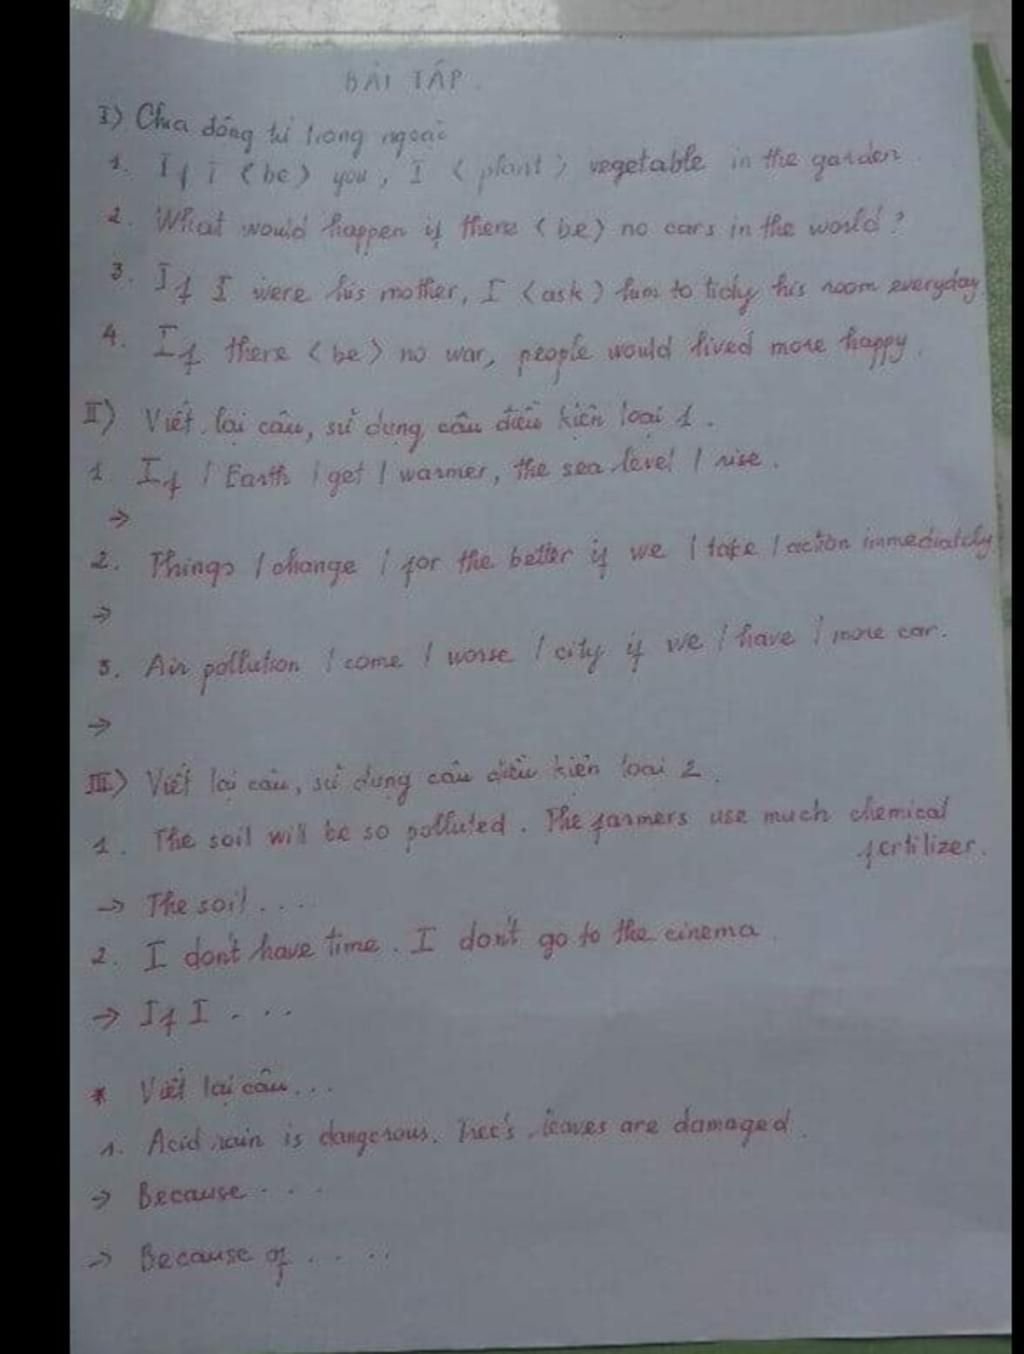 BÀI TẬP.
I) Chia động từ trong ngoặc
1. If i (be) you, I (plant) vegetable in the garden.
2. What would happen if there (be) no cars in the world?
3. If I were his mother, I (ask) him to tidy his room everyday
4. If there (be) no war, people would lived more happy.
II) Viết lại câu, sử dụng câu điều kiện loại 1.
1. If / Earth / get / warmer, the sea level / rise.
→
2. Things / change / for the better if we / take / action immediately
→
3. Air pollution / come / worse / city if we / have / more car.
→
III) Viết lại câu, sử dụng câu điều kiện loại 2.
1. The soil will be so polluted. The farmers use much chemical
fertilizer.
→ The soil....
2. I don't have time. I don't go to the cinema.
→ If I ...
* Viết lại câu...
1. Acid rain is dangerous. Tree's leaves are damaged.
→ Because ...
→ Because of .....